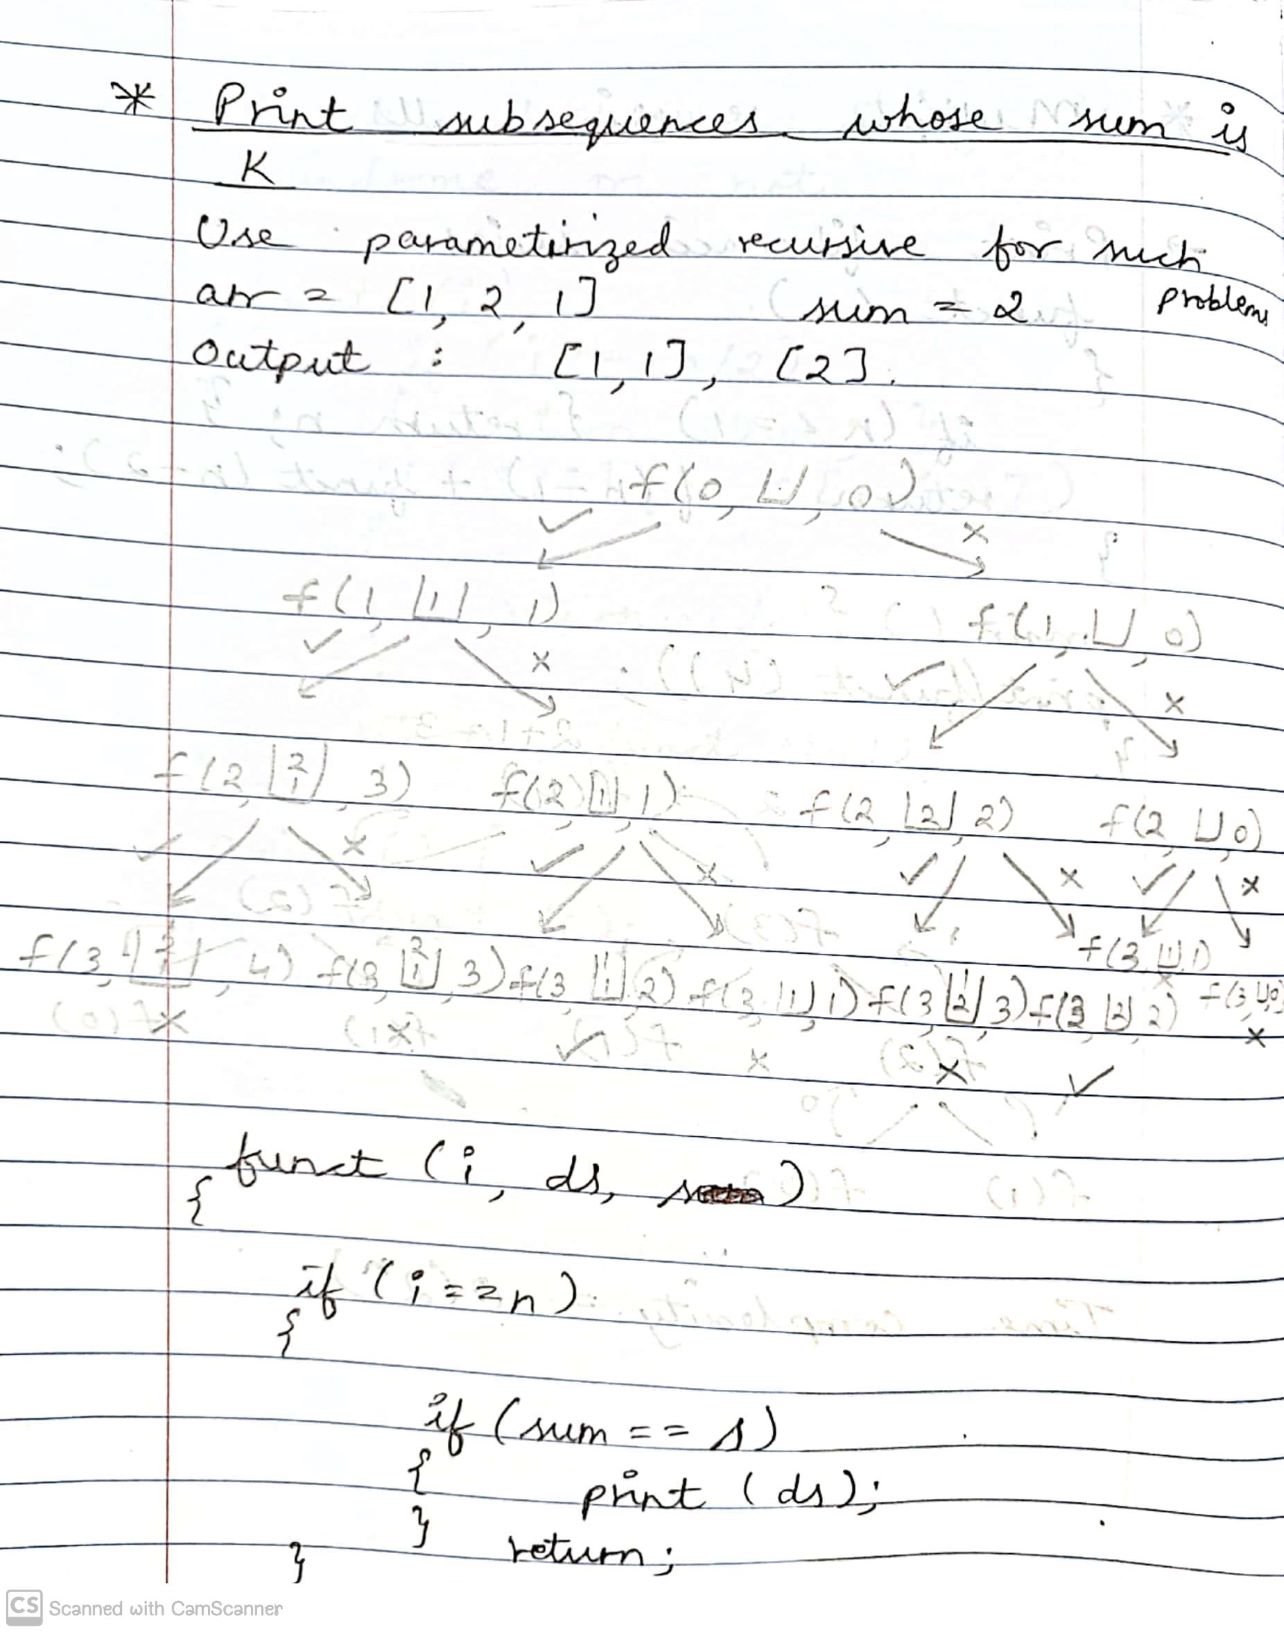 * Print subsequences whose sum is
K
Use parametirized recursive for such problems
arr = [1, 2, 1] sum = 2
Output : [1, 1], [2].
f(0, ⊔, 0)
✓ ×
f(1, |1|, 1) f(1, ⊔, 0)
✓ × ✓ ×
f(2, |2 1|, 3) f(2, |1|, 1) f(2, |2|, 2) f(2, ⊔, 0)
✓ × ✓ × ✓ × ✓ ×
f(3, |1 2 1|, 4) f(3, |2 1|, 3) f(3, |1 1|, 2) f(3, |1|, 1) f(3, |1 2|, 3) f(3, |2|, 2) f(3, |1|, 1) f(3, ⊔, 0)
× × ✓ × × ✓ × ×
funct (i, ds, s)
{
if (i == n)
{
if (sum == s)
{
print (ds);
}
return;
}
CS Scanned with CamScanner